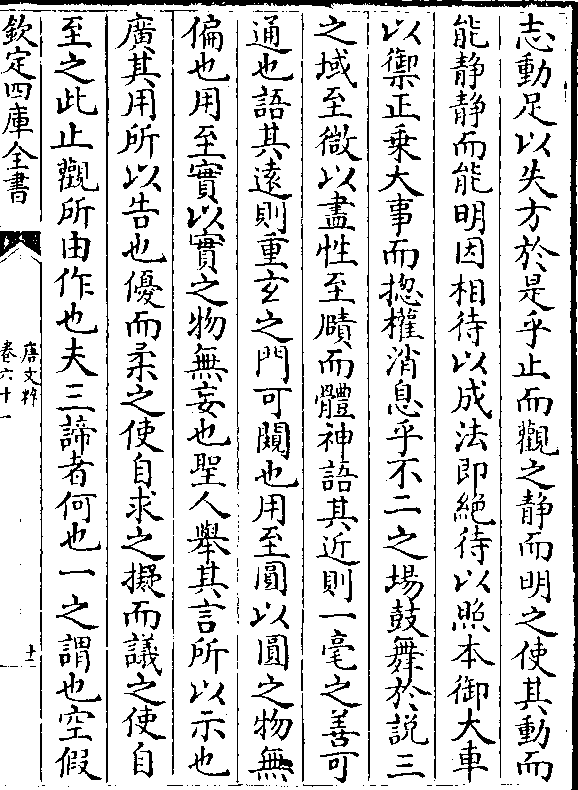 志動足以失方於是乎止而觀之静而明之使其動而
能静静而能明因相待以成法即絶待以照本御大車
以禦正乗大事而揔權消息乎不二之場鼓舞於說三
之域至微以盡性至賾而體神語其近則一毫之善可
通也語其遠則重玄之門可闚也用至圓以圓之物無
偏也用至實以實之物無妄也聖人舉其言所以示也
廣其用所以告也優而柔之使自求之擬而議之使自
至之此止觀所由作也夫三諦者何也一之謂也空假
欽定四庫全書
唐文粹
卷六十一
十一